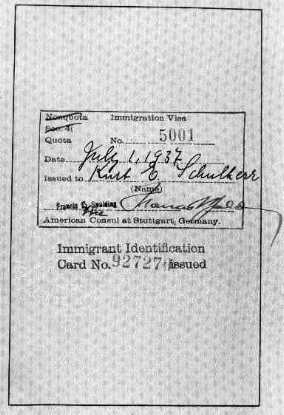 Nonquota Immigration Visa
Sec. 4(
Quota No. 5001
Date July 1, 1937
Issued to Kurt E. Schulherr
(Name)
Vice
American Consul at Stuttgart, Germany.
Immigrant Identification
Card No. 92727 issued